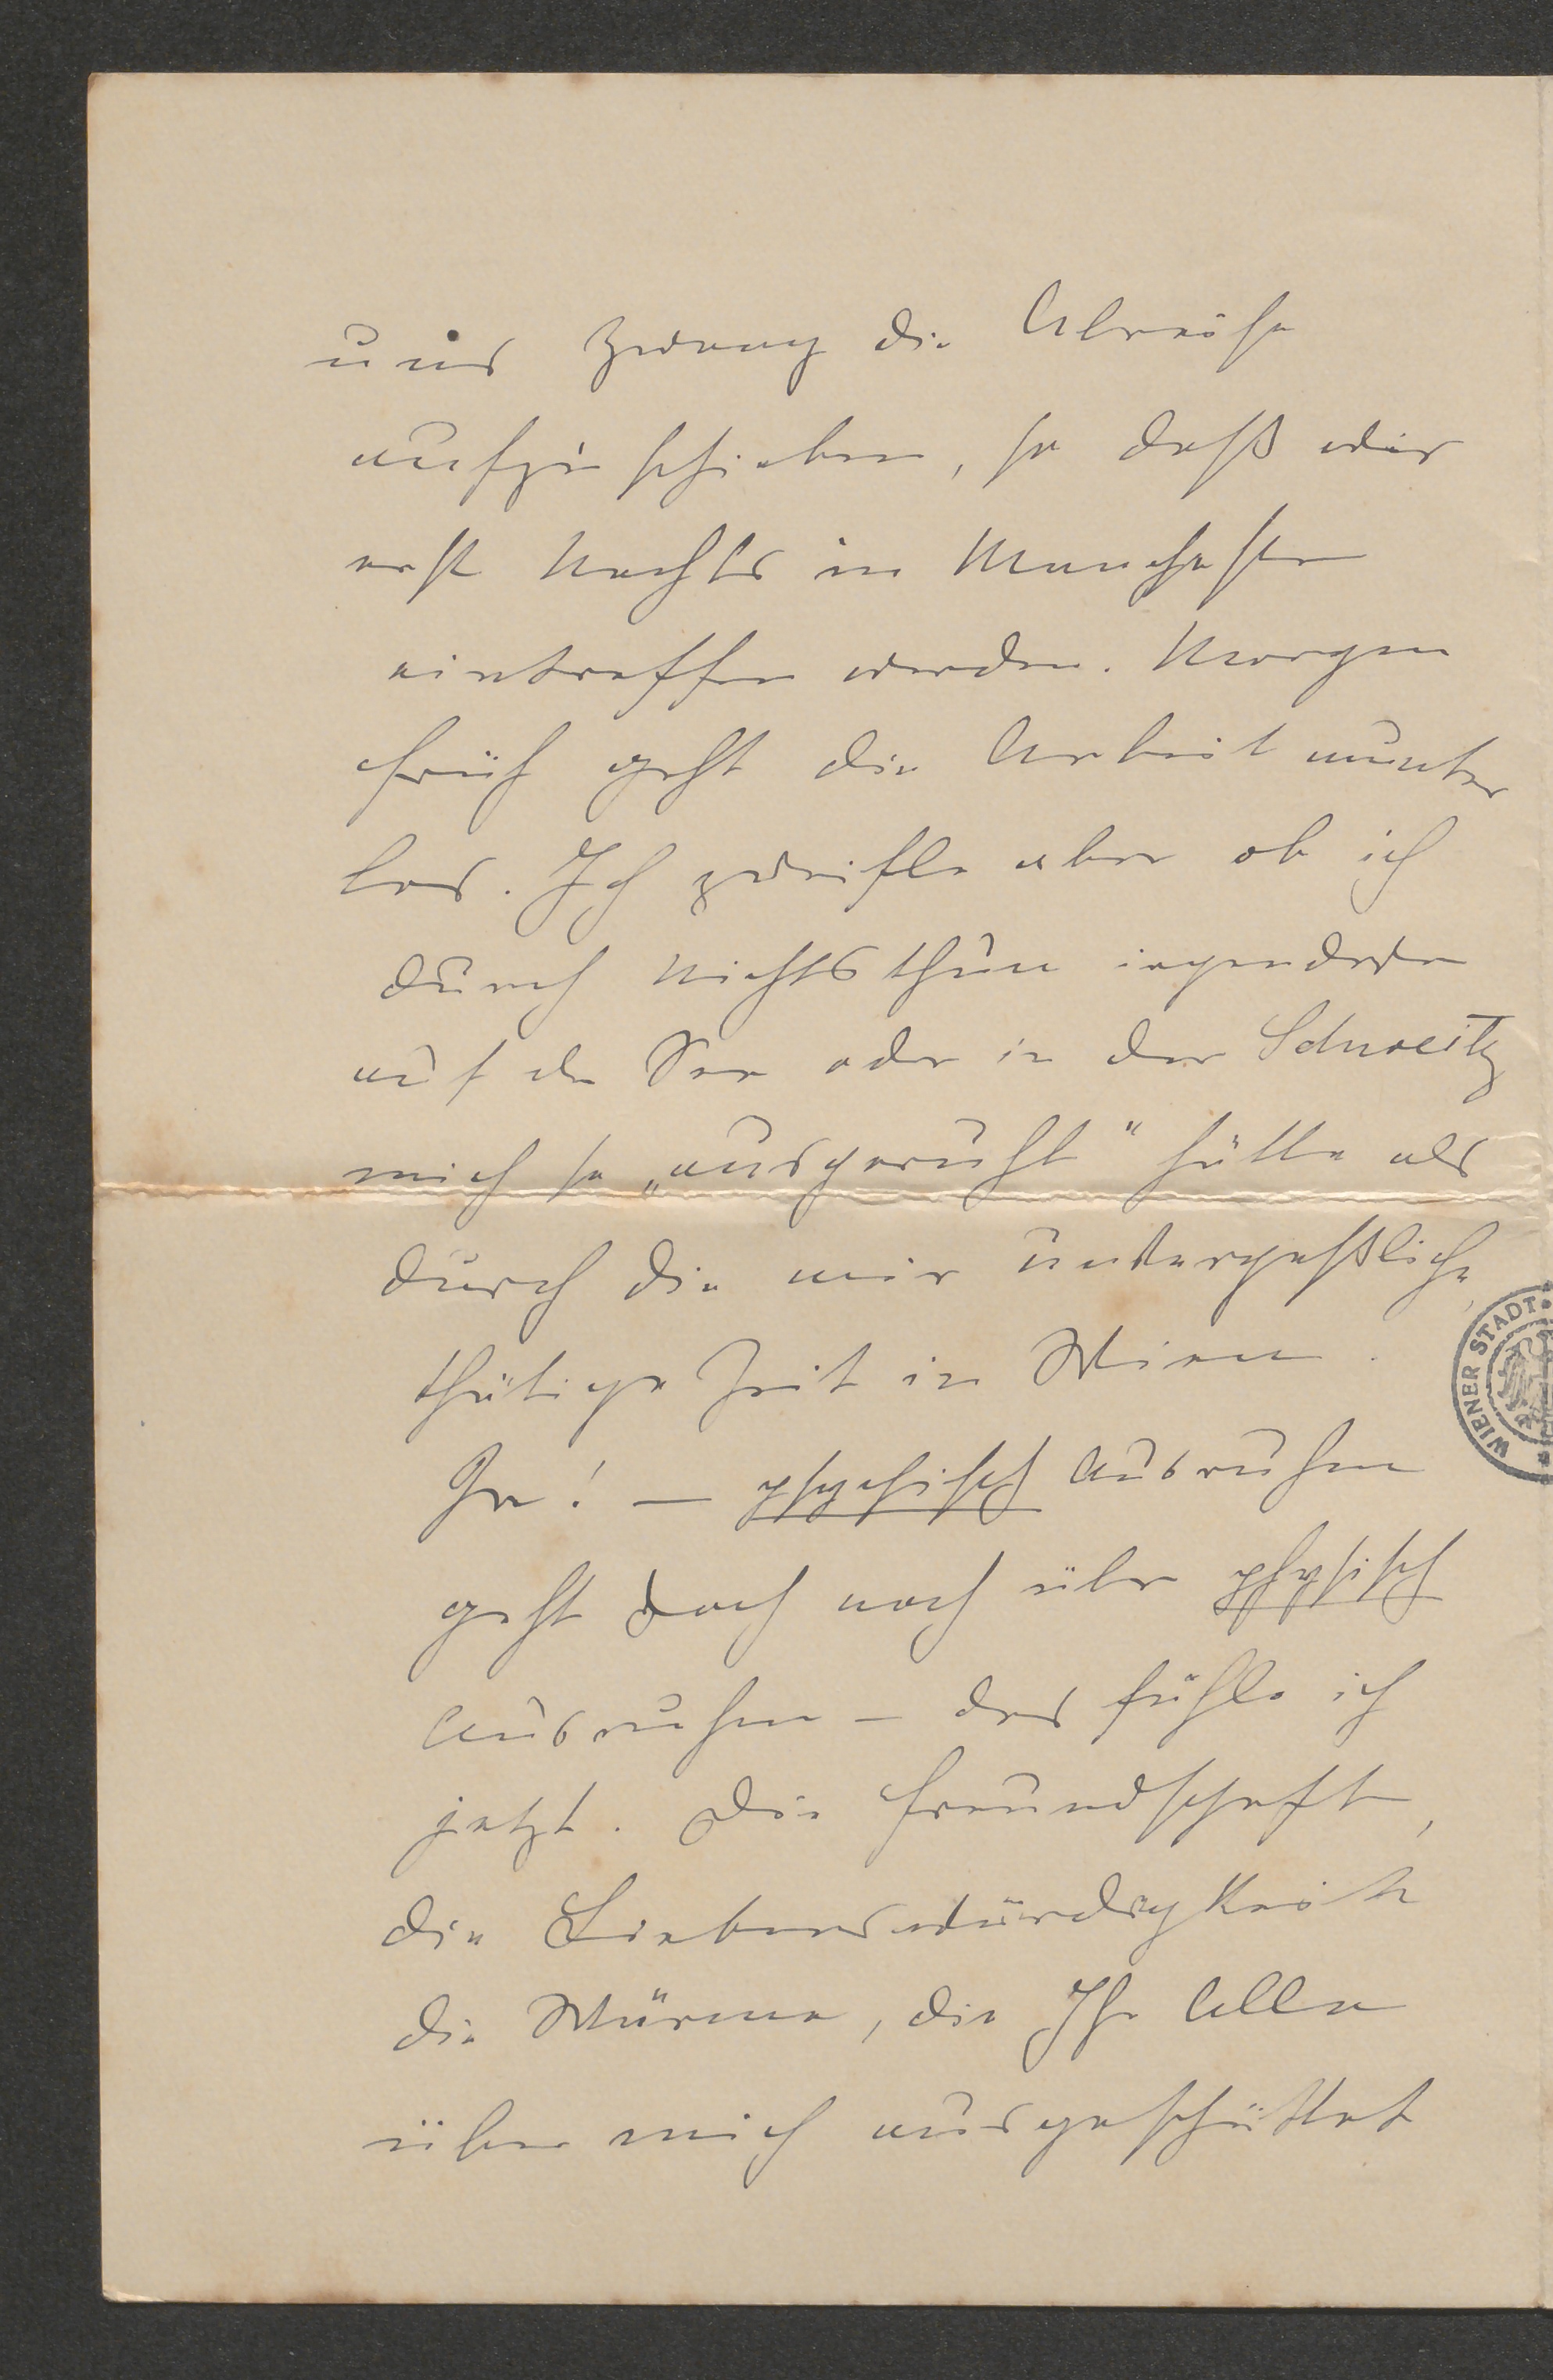 uns zwang die Abreise
aufzu schieben, so daß wir
erst Nachts in Manchester
eintreffen werden. Morgen
früh geht die Arbeit munter
los. Ich zweifle aber ob ich
durch Nichtsthun irgendwo
auf der See oder in der Schweitz
mich so „ausgeruht" hätte als
durch die mir unvergeßliche,
thätige Zeit in Wien.
Ja! — psychisch Ausruhen
geht doch noch über physisch
Ausruhen — das fühle ich
jetzt. Die Freundschaft,
die Liebenswürdigkeit
die Wärme, die Ihr Alle
über mich ausgeschüttet
WIENER STADT